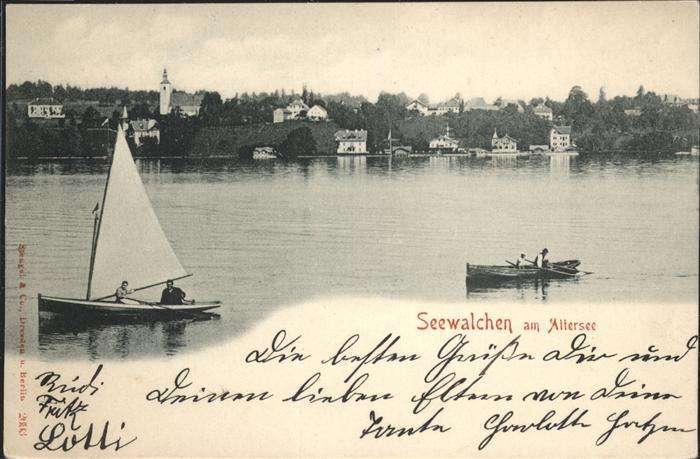 Seewalchen am Attersee
Stengel & Co., Dresden u. Berlin
Die besten Grüße Dir und
Deinen lieben Eltern von Deine
Tante Charlotte
Rudi
Fritz
Lotti